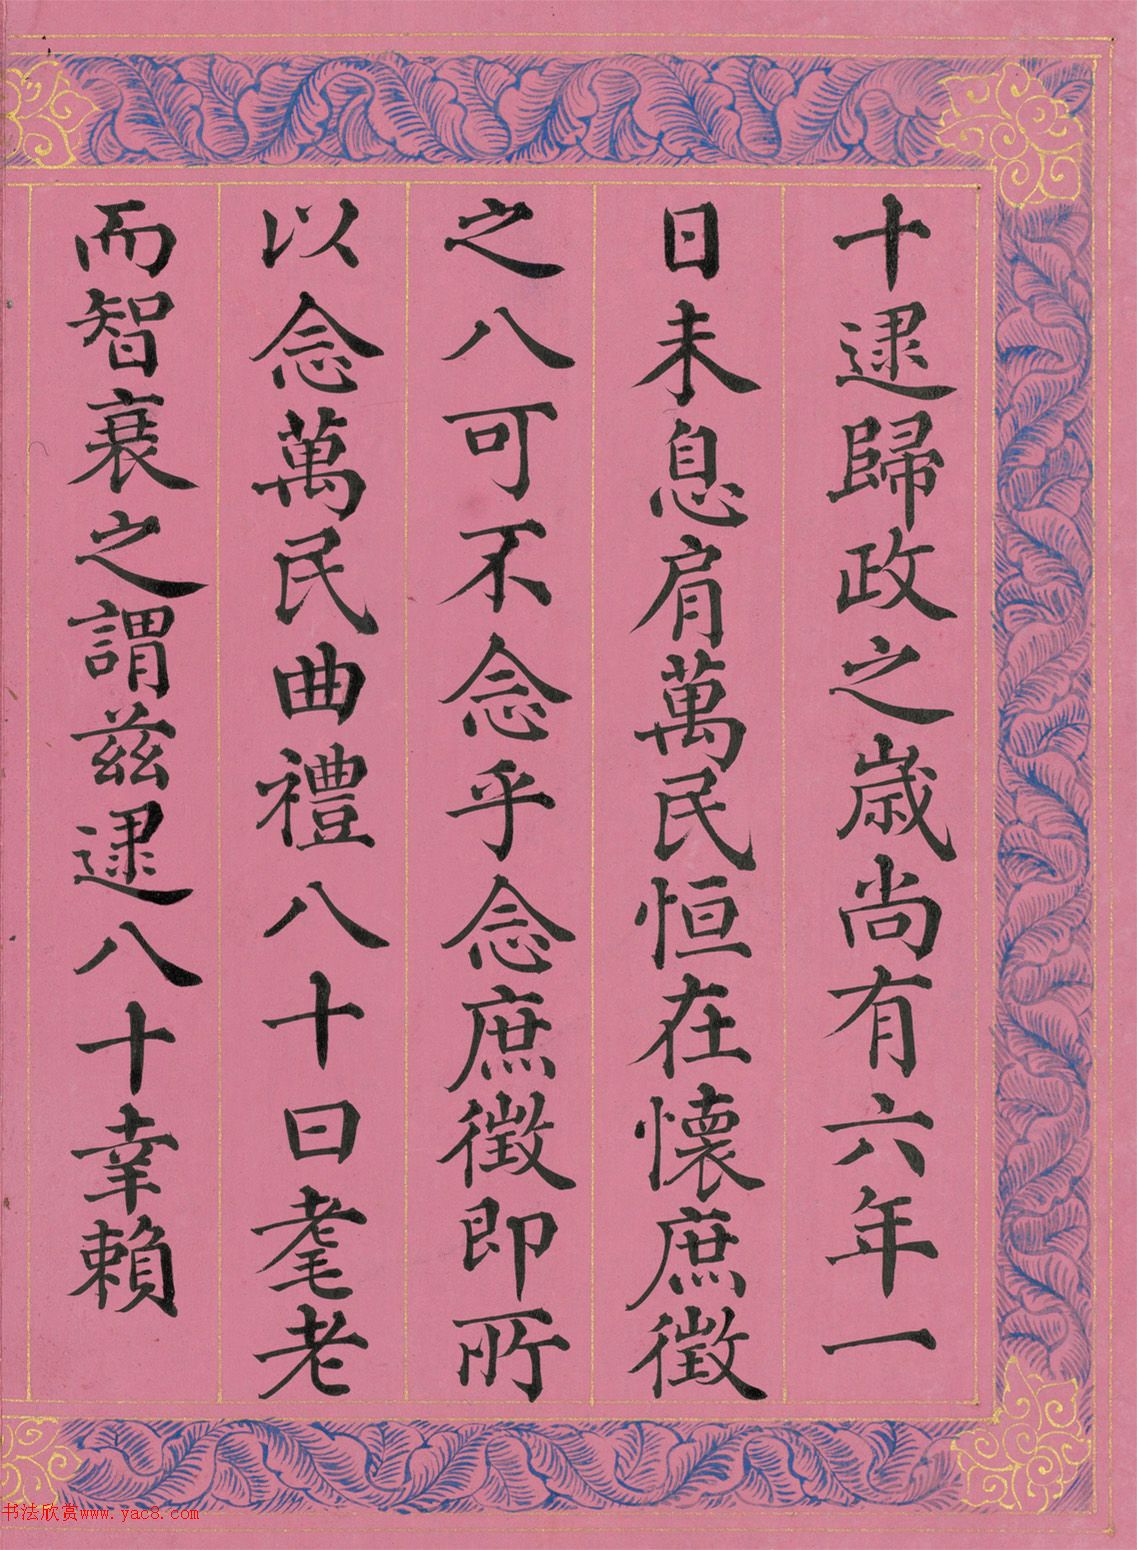 十逮歸政之歲尚有六年一
日未息肩萬民恒在懐庶徵
之八可不念乎念庶徵即所
以念萬民曲禮八十曰耄老
而智衰之謂茲逮八十幸賴
书法欣赏www.yac8.com